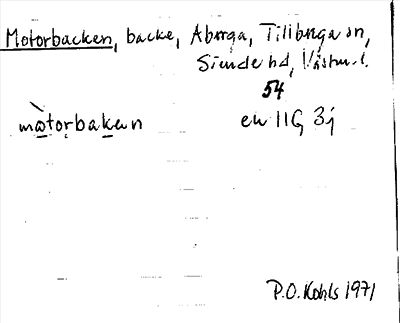 Motorbacken, backe, Åberga, Tillberga sn,
Siende hd, Västm. l.
54
motorbaken
ek 11G 3j
P.O. Kohls 1971